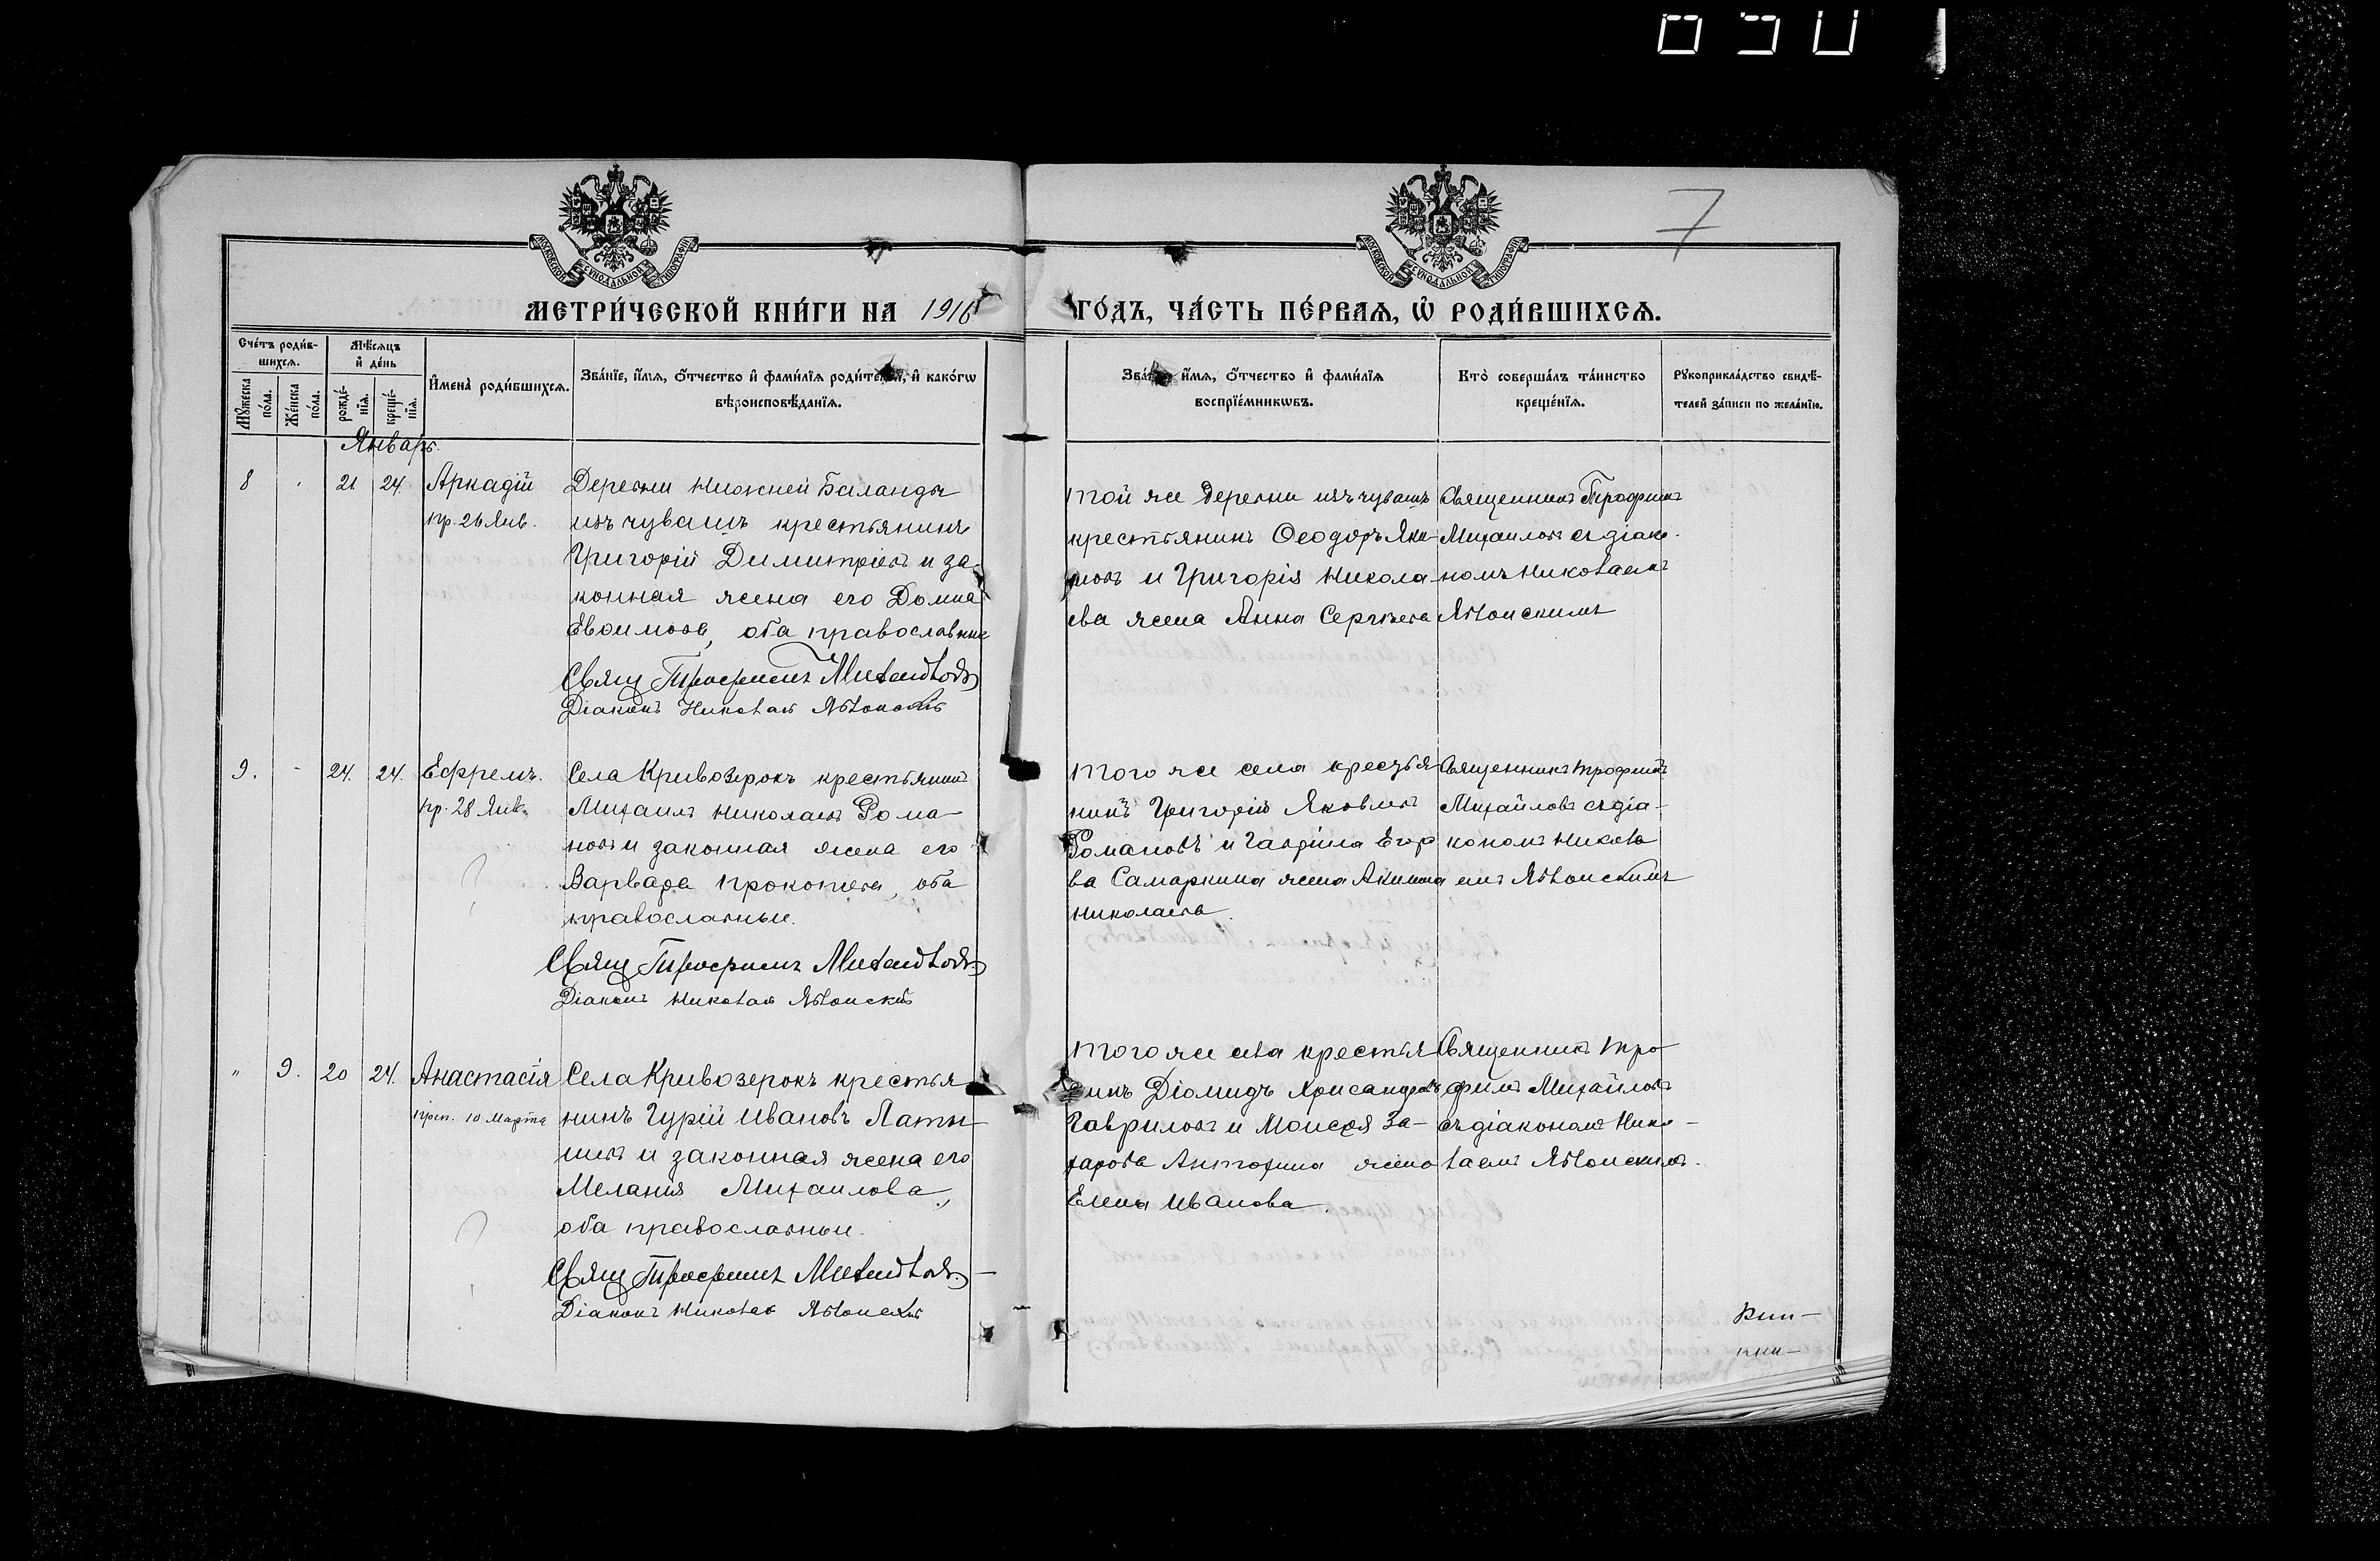 7
МОСКОВСКОЙ СѴНОДАЛЬНОЙ ТИПОГРАФІИ
МОСКОВСКОЙ СѴНОДАЛЬНОЙ ТИПОГРАФІИ
МЕТРИ́ЧЕСКОЙ КНИ́ГИ НА 1916 ГО́ДЪ, ЧА́СТЬ ПЕ́РВАѦ, Ѡ҆ РОДИ́ВШИХСѦ.
Сче́тъ роди́в-
шихсѧ.
Мѣ́сѧцъ
и҆ де́нь
Мꙋ́жеска
по́ла.
Же́нска
по́ла.
рожде́-
нїѧ.
креще́-
нїѧ.
И҆мена̀ роди́вшихсѧ.
Зва́нїе, и҆́мѧ, ѻ҆́тчество и҆ фами́лїѧ роди́телей, и҆ како́гѡ
вѣроисповѣ́данїѧ.
Зва́нїе, и҆́мѧ, ѻ҆́тчество и҆ фами́лїѧ
воспрїе́мникѡвъ.
Кто̀ соверша́лъ та́инство
креще́нїѧ.
Рꙋкоприкла́дство свидѣ́-
телей за́писи по жела́нїю.
Январь.
8
21.
24.
Аркадій
пр. 26 Янв.
Деревни Нижней Баланды
изъ чувашъ крестьянинъ
Григорій Димитріевъ и за-
конная жена его Домна
Евѳимова, оба православные
Свящ Трофимъ Михайловъ
Діаконъ Николай Яблонскій
той же деревни изъ чувашъ
крестьянинъ Ѳеодоръ Яки-
мовъ и Григорія Никола-
ева жена Анна Сергѣева
Священникъ Трофимъ
Михайловъ съ діако-
номъ Николаемъ
Яблонскимъ
9.
-
24.
24.
Ефремъ.
пр. 28 Янв.
Села Кривозерокъ крестьянинъ
Михаилъ Николаевъ Рома-
новъ и законная жена его
Варвара Прокопьева, оба
православные.
Свящ Трофимъ Михайловъ
Діаконъ Николай Яблонскій
того же села крестья
нинъ Григорій Яковлевъ
Романовъ и Гавріила Егор
ва Самаркина жена Акилина
Николаева.
Священникъ Трофимъ
Михайловъ съ діа-
кономъ Никола
емъ Яблонскимъ
"
9.
20
24.
Анастасія
прп. 10 Марта
Села Кривозерокъ крестья
нинъ Гурій Ивановъ Латы-
шевъ и законная жена его
Меланія Михаилова,
оба православные.
Свящ Трофимъ Михайловъ
Діаконъ Николай Яблонскій
того же села крестья
нинъ Діомидъ Хрисанфовъ
Гавриловъ и Моисея За-
харова Антохина жена
Елена Иванова.
Священникъ Тро
фимъ Михайловъ
съ діакономъ Нико-
лаемъ Яблонскимъ.